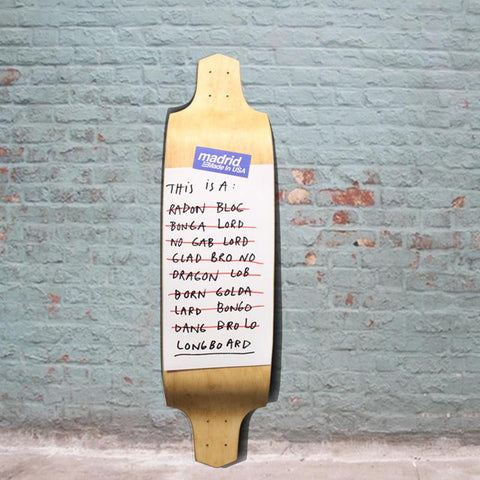 madrid
Made in USA
THIS IS A:
RADON BLOG
BONGA LORD
NO GAB LORD
GLAD BRO NO
DRAGON LOB
BORN GOLDA
LARD BONGO
DANG BRO LO
LONGBOARD